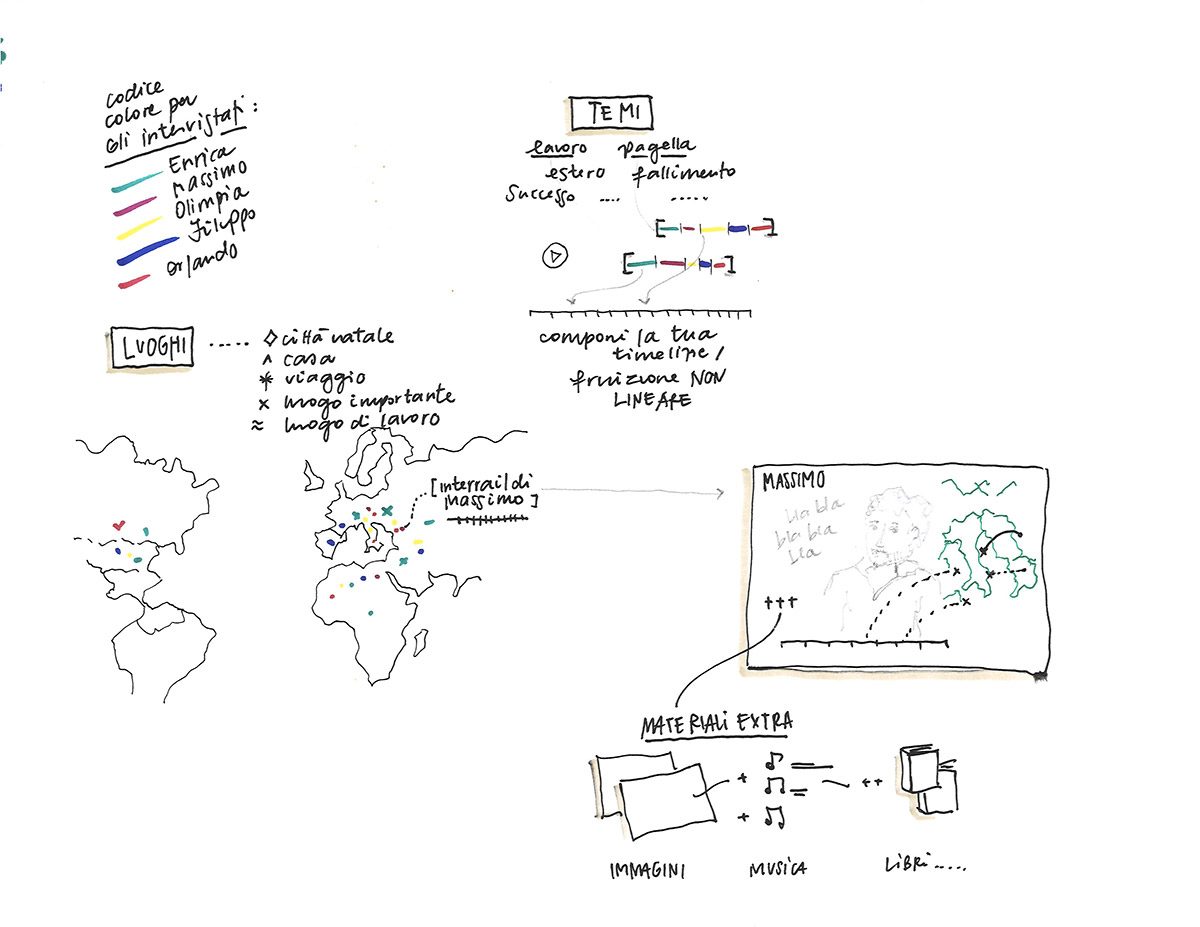 codice
colore per
gli intervistati:
Enrica
Massimo
Olimpia
Filippo
Orlando
TEMI
lavoro pagella
estero fallimento
Successo .... .....
componi la tua
timeline/
fruizione NON
LINEARE
LUOGHI ..... ◇ città natale
^ casa
* viaggio
x luogo importante
≈ luogo di lavoro
[interrail di
Massimo]
MASSIMO
bla bla
bla bla
bla
+++
MATERIALI EXTRA
+
++
+
IMMAGINI
MUSICA
LIBRI.....